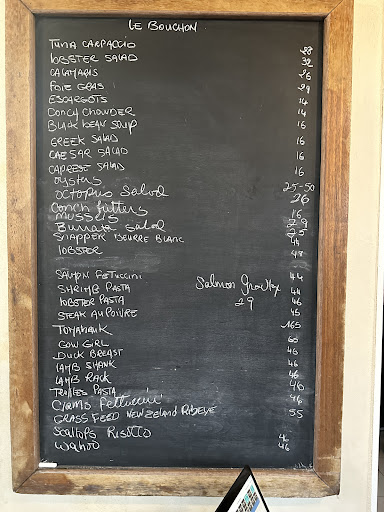 LE BOUCHON
TUNA CARPACCIO 28
LOBSTER SALAD 32
CALAMARIS 26
FOIE GRAS 29
ESCARGOTS 14
CONCY CHOWDER 14
BLACK BEAN SOUP 16
GREEK SALAD 16
CAESAR SALAD 16
CAPRESE SALAD 16
OYSTERS 25-50
OCTOPUS Salad 26
Conch fritters 16
MUSSELS 29
Burrata Salad 25
SNAPPER BEURRE BLANC 44
LOBSTER 48
SALMON FETTUCCINI 44
Salmon Gravlax
SHRIMP PASTA 44
29
LOBSTER PASTA 46
STEAK AU POIVRE 45
TOMAHAWK 165
COW GIRL 60
DUCK BREAST 46
LAMB SHANK 46
LAMB RACK 46
TRUFFLES PASTA 40
Clams Fettuccini 46
GRASS FEED NEW ZELAND RIBEYE 55
SCALLOPS RISOTTO
WAHOO 46